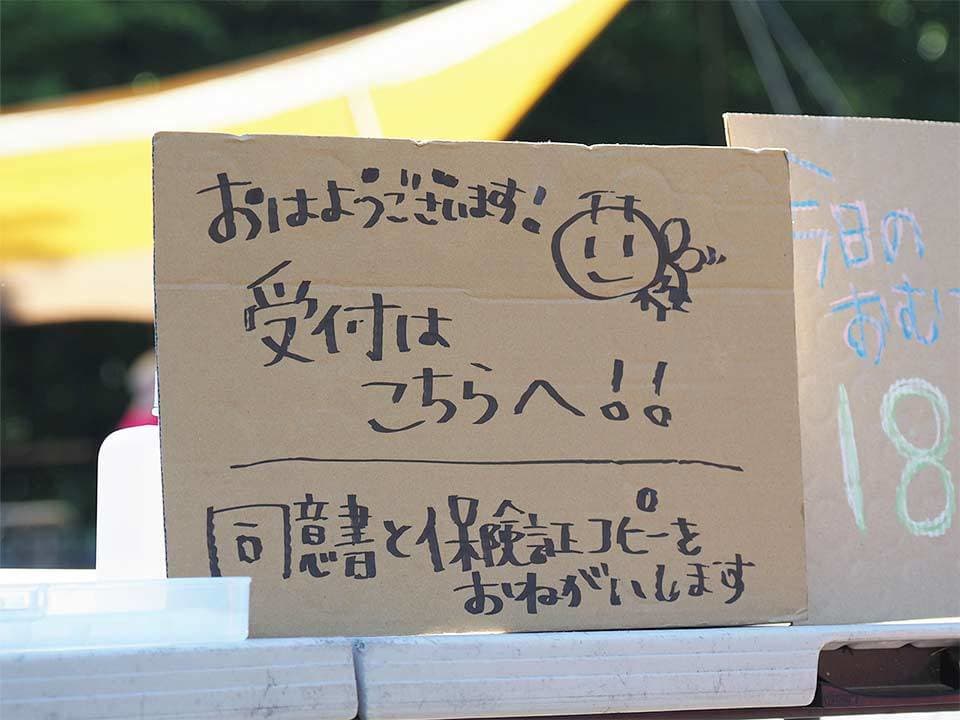 おはようございます!
受付は
こちらへ!!
同意書と保険証コピーを
おねがいします
今日の
おむ
18